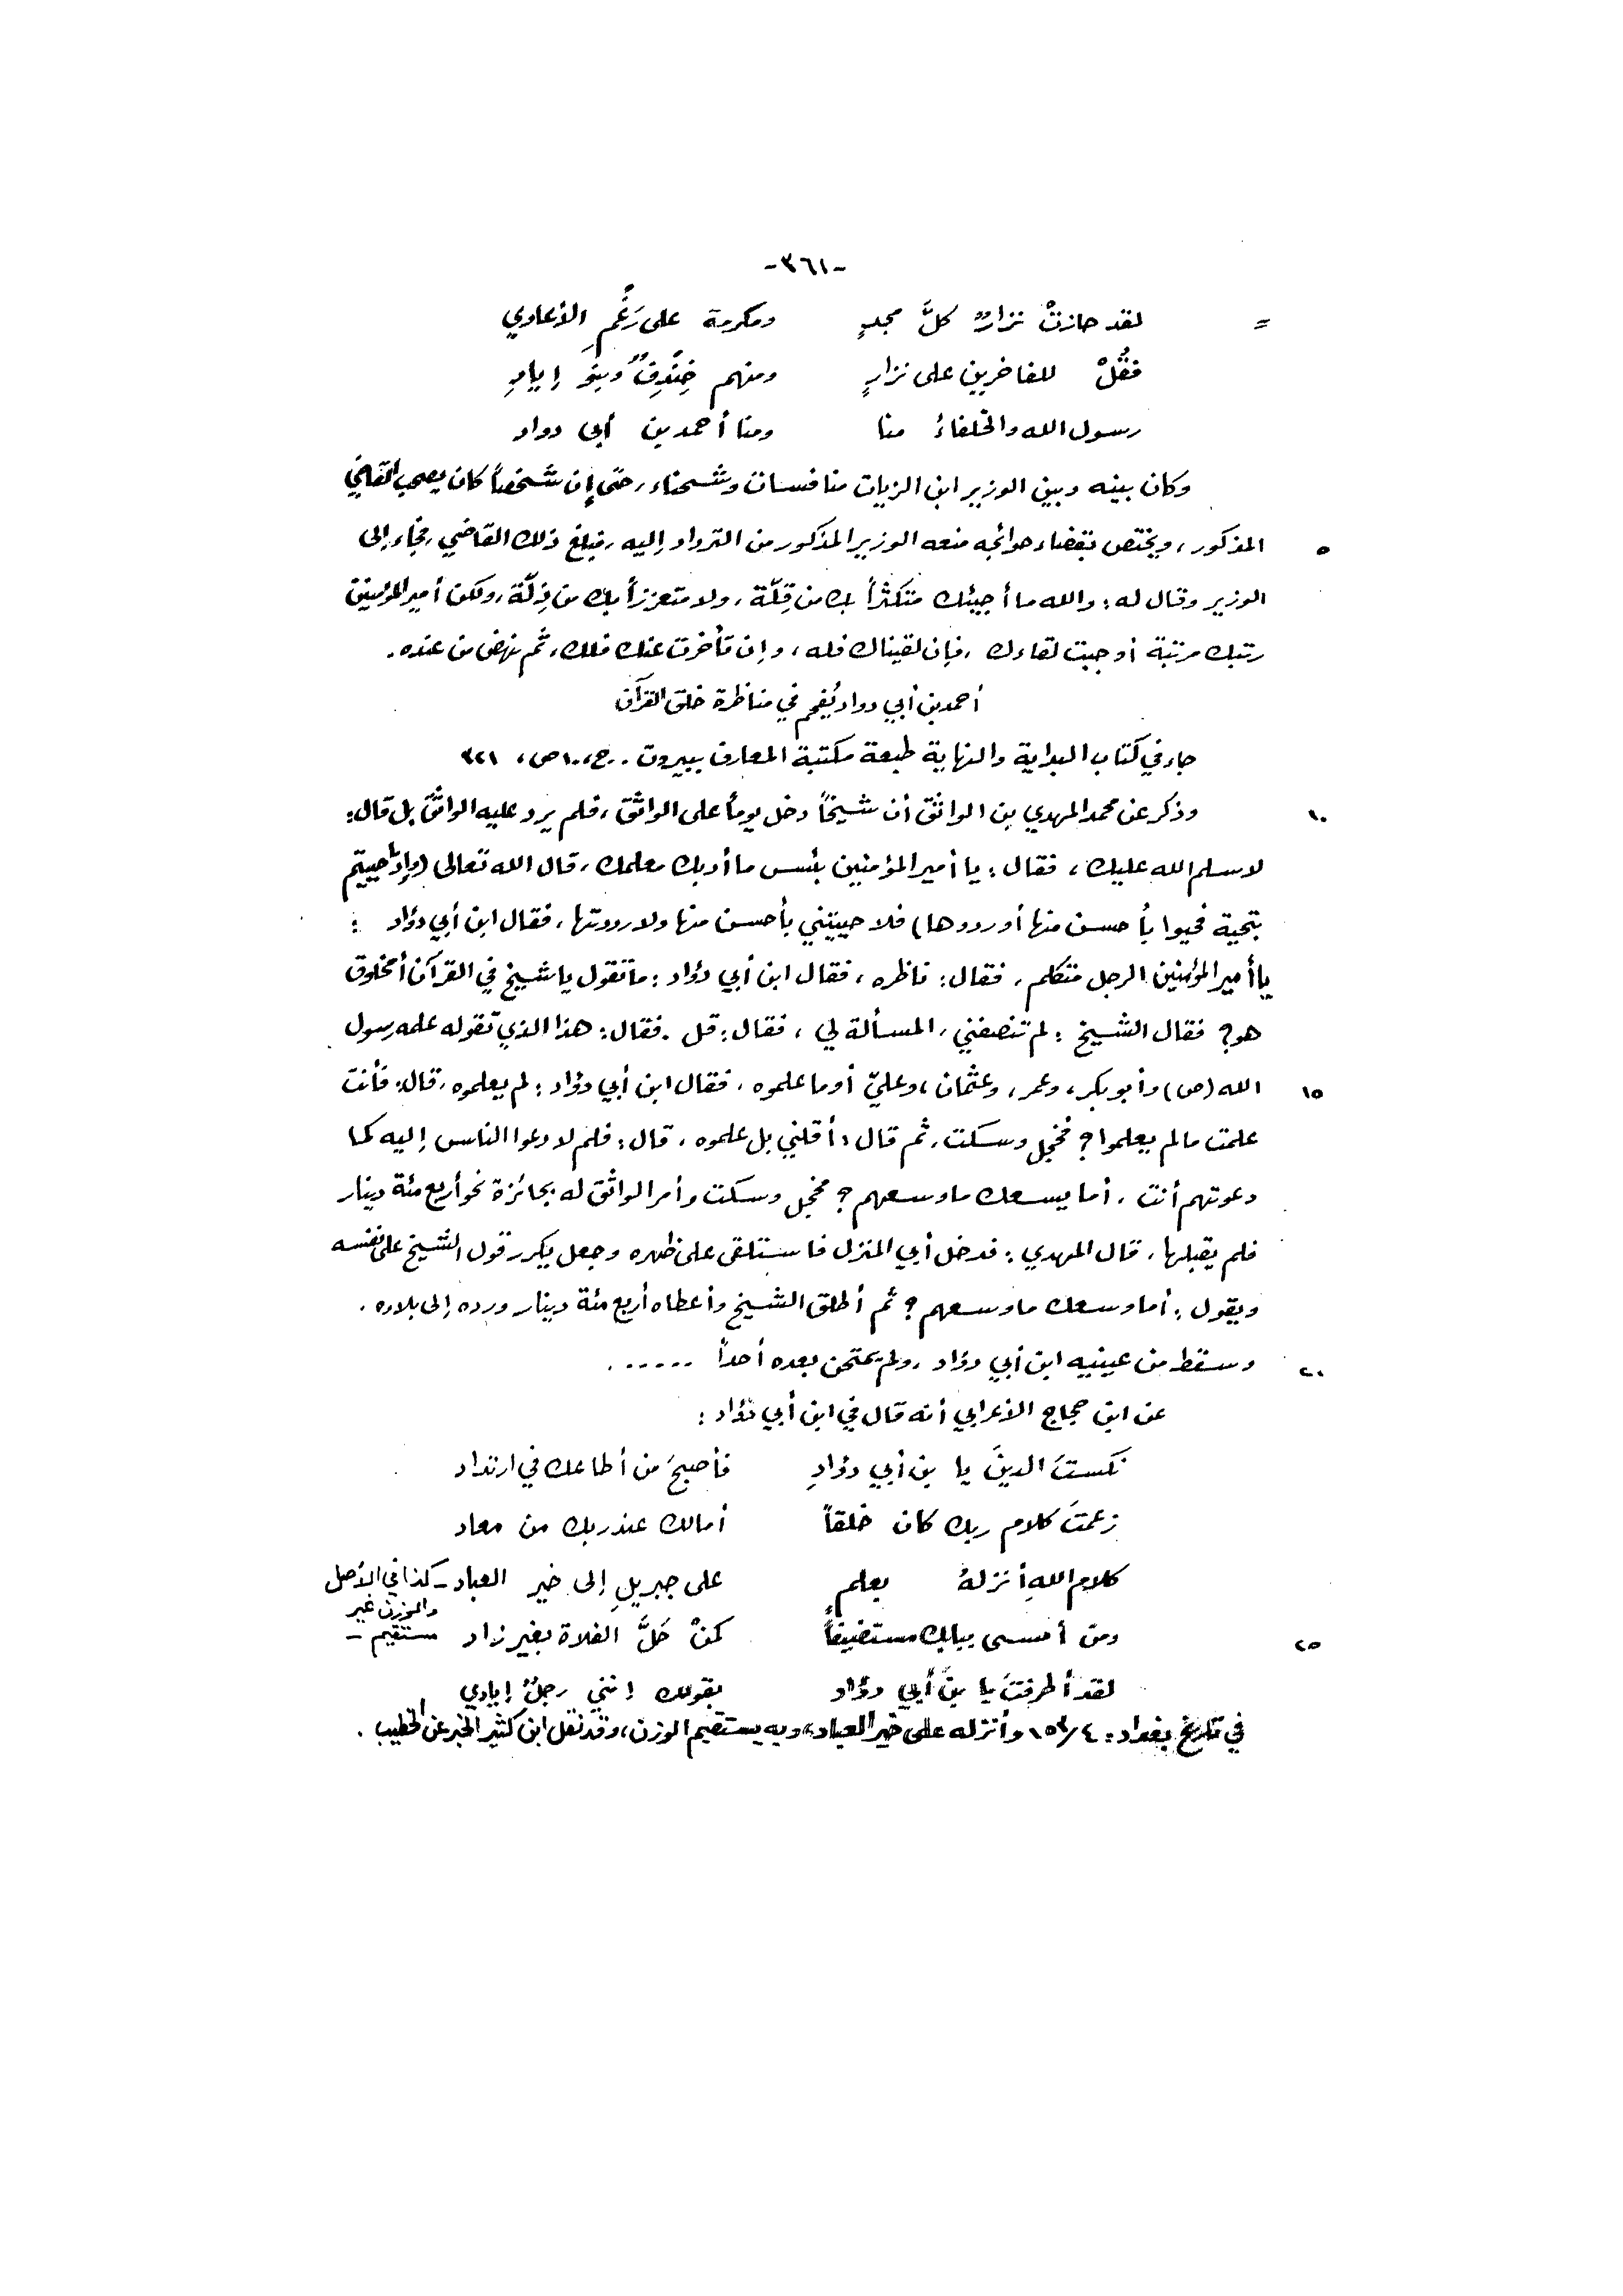 -٣٦١-
= لقد حازتْ نزارٌ كلَّ مجدٍ ومكرمة على رَغْمِ الأعادي
فقُلْ للفاخرين على نزارٍ ومنهم خِنْدِفٌ وبنو إيادِ
رسول الله والخلفاءُ منا ومنا أحمد بن أبي دواد
وكان بينه وبين الوزير ابن الزيات منافسات وشحناء، حتى إن شخصاً كان يصحب القاضي
٥ المذكور، ويختص بقضاء حوائجه منعه الوزير المذكور من الترداد إليه، فبلغ ذلك القاضي، فجاء إلى
الوزير وقال له: والله ما أجيئك متكثراً بك من قِلّة، ولا متعززاً بك من ذِلّة، ولكن أمير المؤمنين
رتبك مرتبة أوجبت لقاءك، فإن لقيناك فله، وإن تأخرت عنك فلك، ثم نهض من عنده.
أحمد بن أبي دواد يُفحم في مناظرة خلق القرآن
جاء في كتاب البداية والنهاية طبعة مكتبة المعارف ببيروت .. ج، ١٠ ص، ٣٢١
١٠ وذكر عن محمد المهدي بن الواثق أن شيخاً دخل يوماً على الواثق، فلم يرد عليه الواثق بل قال:
لا سلم الله عليك، فقال: يا أمير المؤمنين بئس ما أدبك معلمك، قال الله تعالى (وإذا حييتم
بتحية فحيوا بأحسن منها أو ردوها) فلا حييتني بأحسن منها ولا رددتها، فقال ابن أبي دؤاد :
يا أمير المؤمنين الرجل متكلم، فقال: ناظره، فقال ابن أبي دؤاد: ما تقول يا شيخ في القرآن أمخلوق
هو؟ فقال الشيخ: لم تنصفني، المسألة لي، فقال: قل. فقال: هذا الذي تقوله علمه رسول
١٥ الله (ص) وأبو بكر، وعمر، وعثمان، وعليّ أو ما علموه، فقال ابن أبي دؤاد: لم يعلموه، قال: فأنت
علمت ما لم يعلموا؟ فخجل وسكت، ثم قال: أقلني بل علموه، قال: فلم لا دعوا الناس إليه كما
دعوتهم أنت، أما يسعك ما وسعهم؟ فخجل وسكت وأمر الواثق له بجائزة نحو أربع مئة دينار
فلم يقبلها، قال المهدي: فدخل أبي المنزل فاستلقى على ظهره وجعل يكرر قول الشيخ على نفسه
ويقول: أما وسعك ما وسعهم؟ ثم أطلق الشيخ وأعطاه أربع مئة دينار ورده إلى بلاده.
٢٠ وسقط من عينيه ابن أبي دؤاد، ولم يمتحن بعده أحداً ......
عن ابن حجاج الأعرابي أنه قال في ابن أبي دؤاد:
نكستَ الدينَ يا بن أبي دؤادِ فأصبحَ من أطاعك في ارتداد
زعمتَ كلام ربك كان خلقاً أمالك عند ربك من معاد
كلام اللهِ أنزلهُ بعلمٍ على جبريلِ إلى خير العباد - كذا في الأصل
والوزن غير
٢٥ ومن أمسى ببابك مستضيفاً كمنْ حَلَّ الفلاة بغير زاد مستقيم -
لقد أطرفتَ يا بنَ أبي دؤاد بقولك إنني رجلٌ إيادي
في تاريخ بغداد: ١٥٣/٤ وأنزله على خير العباد، وبه يستقيم الوزن، وقد نقل ابن كثير الخبر عن الخطيب.